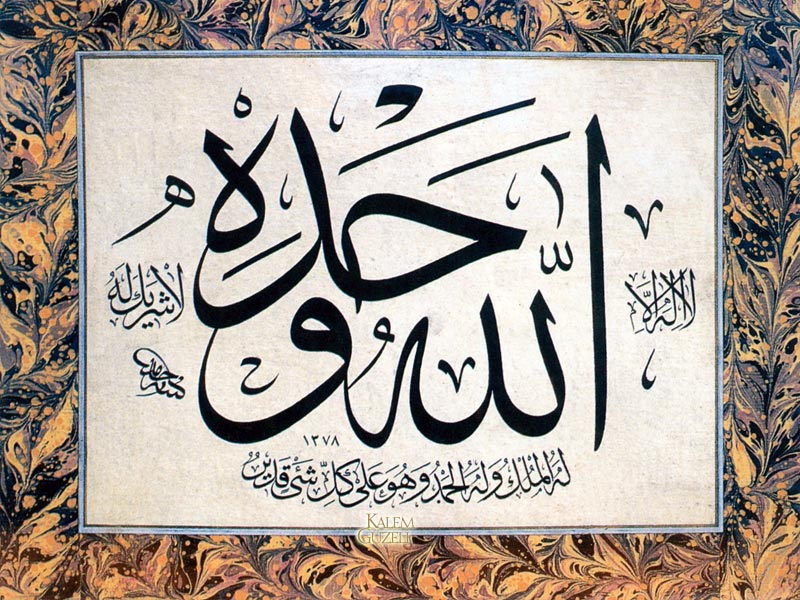 لا اله الا
الله وحده
لا شريك له
١٣٧٨
له الملك وله الحمد وهو على كل شئ قدير
KALEM
GÜZELİ